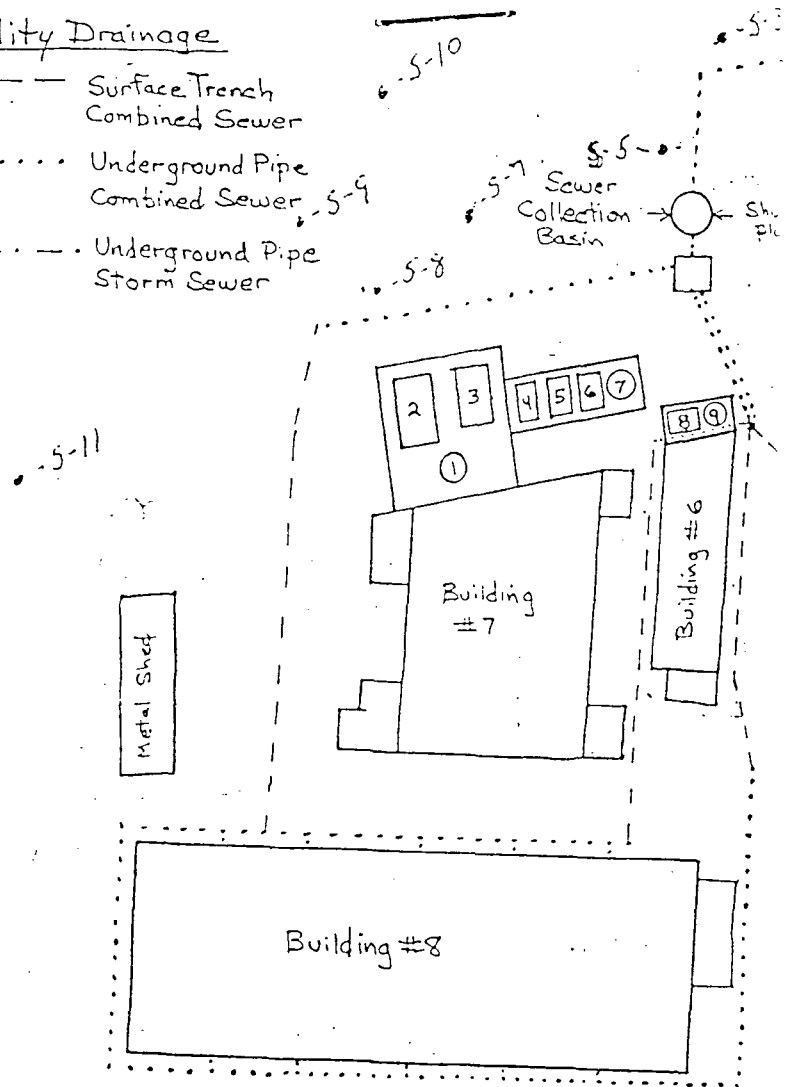 lity Drainage
Surface Trench
Combined Sewer
Underground Pipe
Combined Sewer
Underground Pipe
Storm Sewer
S-10
S-5
S-9
S-7
Sewer
Collection
Basin
S-8
2
3
4
5
6
7
8
9
1
S-11
Building
#7
Building #6
Metal Shed
Building #8